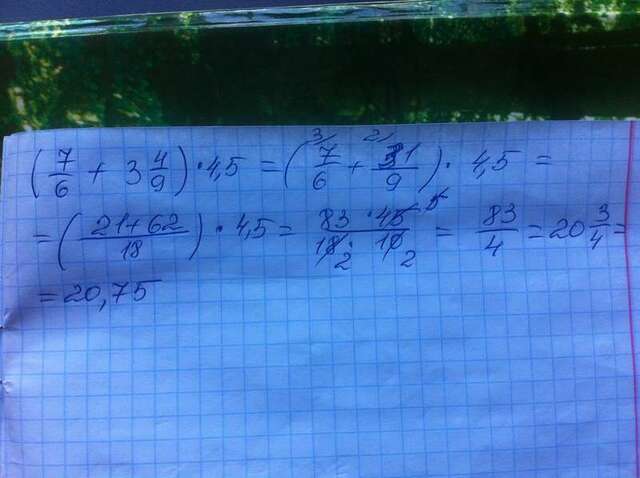 (7/6 + 3 4/9) · 4,5 = (3) 7/6 + 2) 31/9) · 4,5 =
= (21+62/18) · 4,5 = 83 · 45 5/18 2 · 10 2 = 83/4 = 20 3/4 =
= 20,75